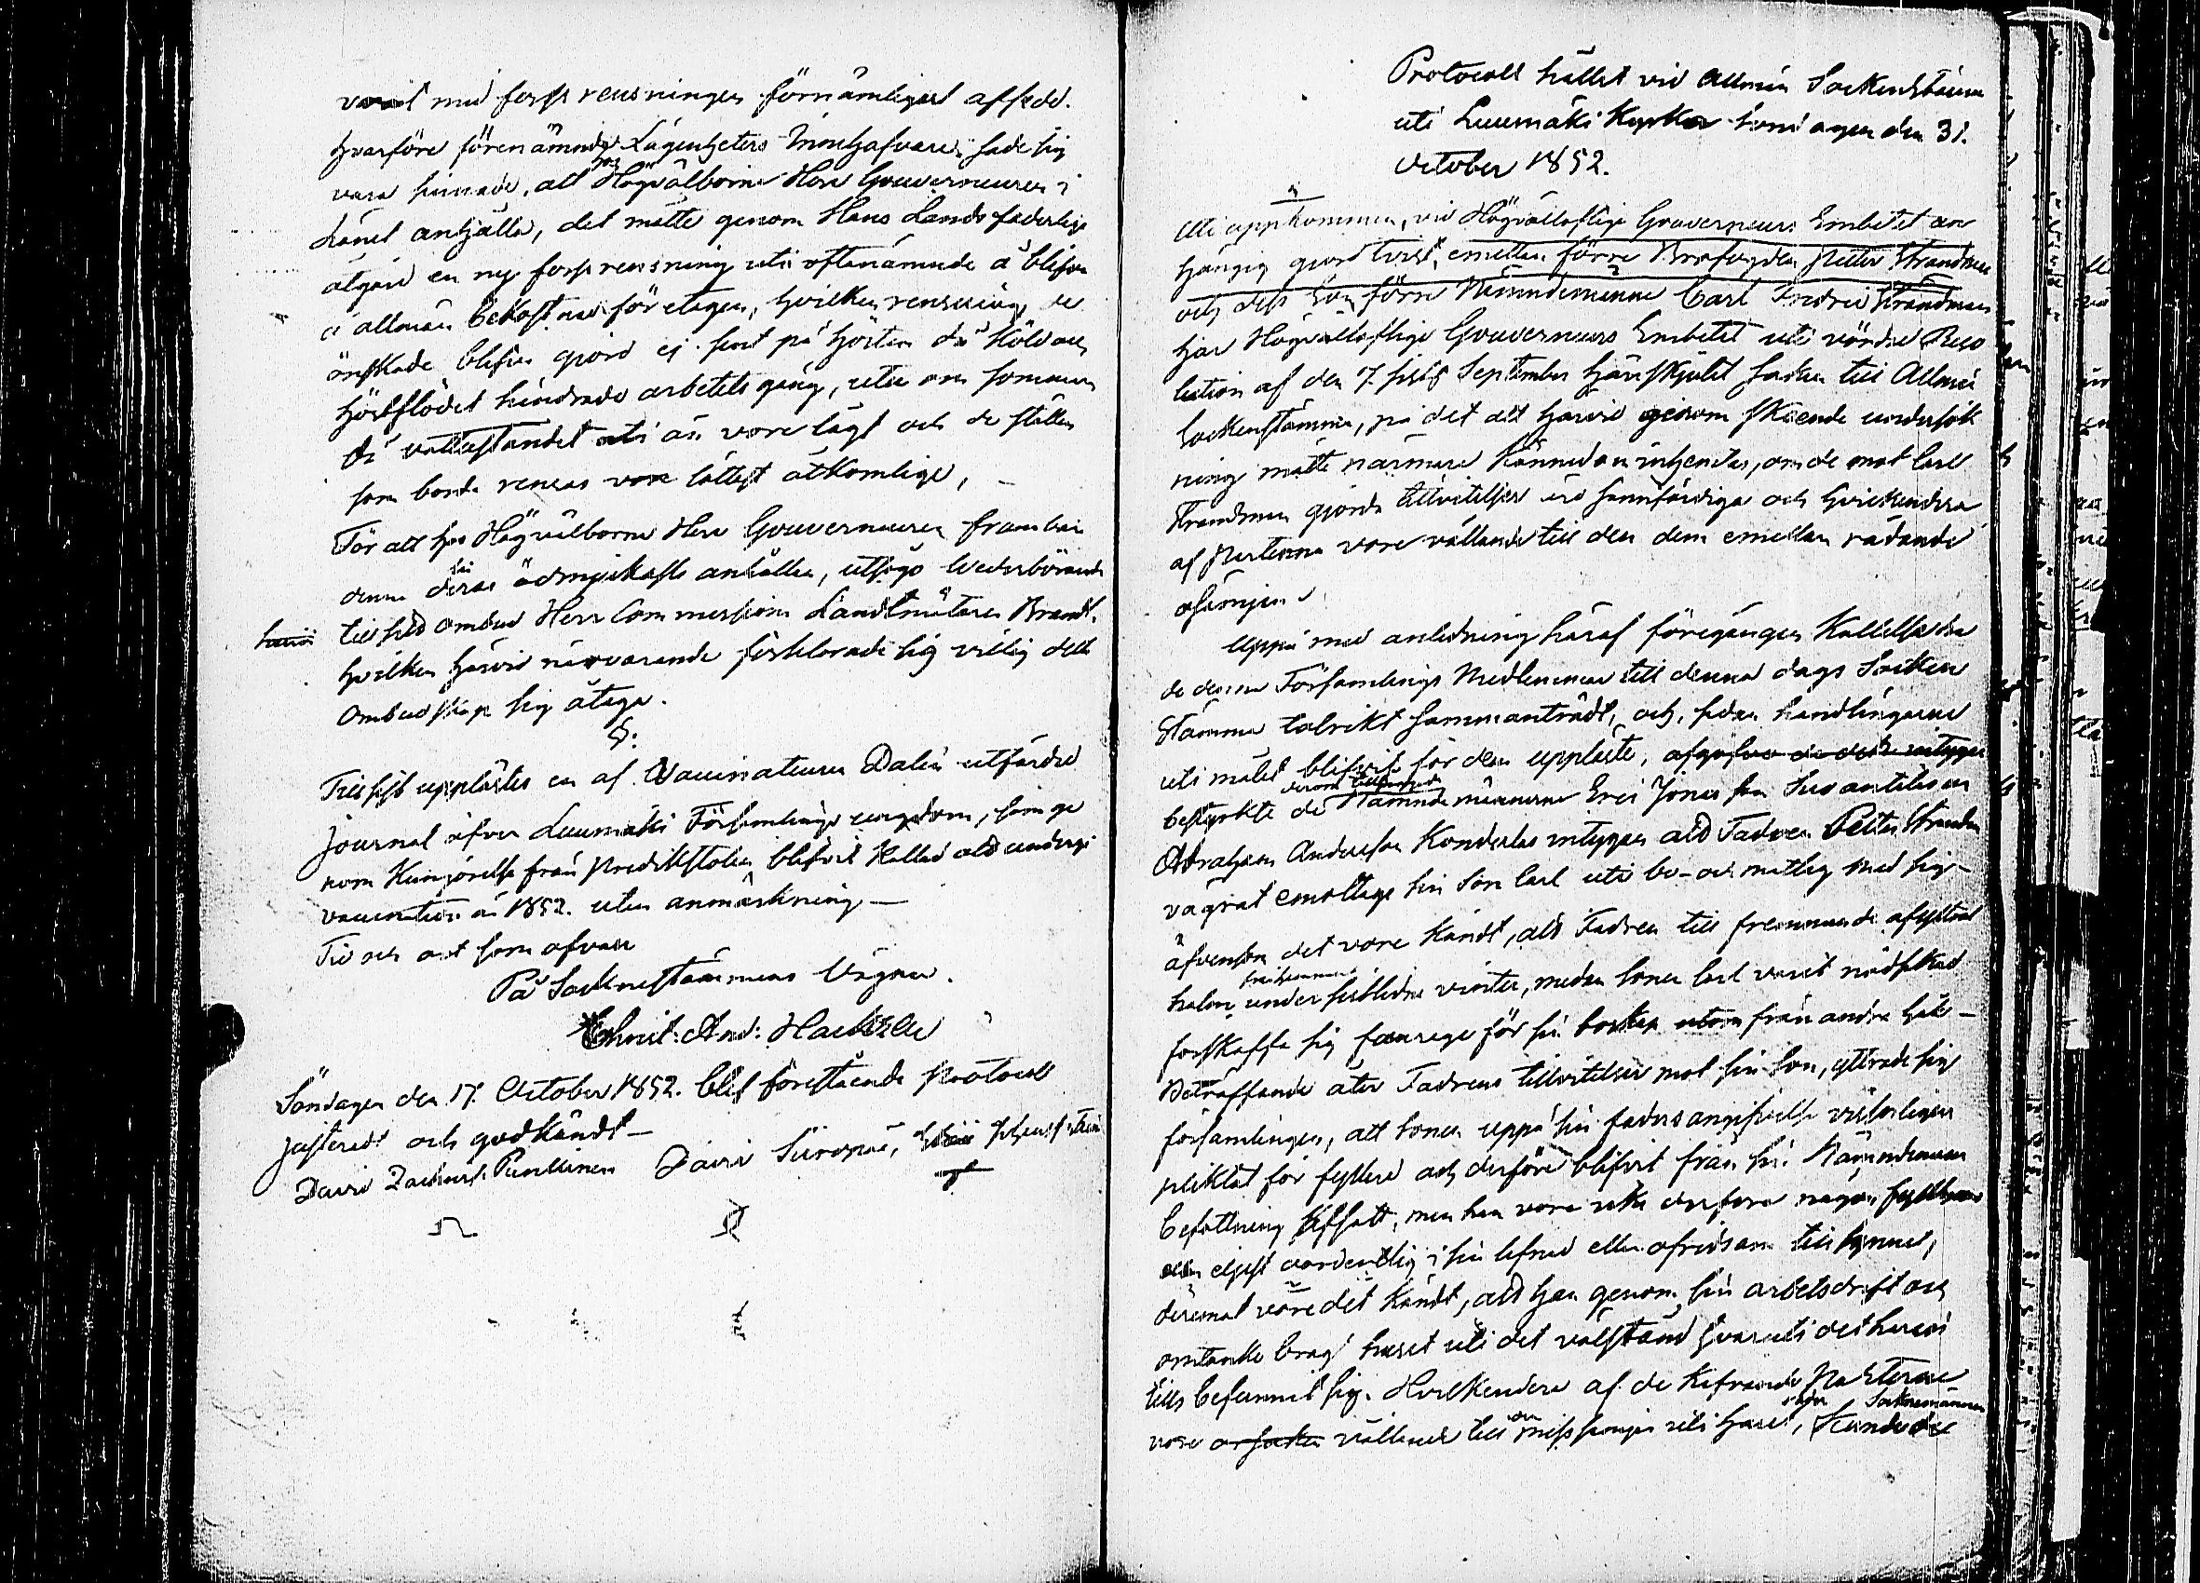 varit med forss rensningen förnämligast afsedd.
hvarföre förenämnde Lägenheters Innehafvare sade sig
vara sinnade, att hos Högvälborne Herr Gouverneuren i
Länet anhålla, det måtte genom Hans Landsfaderliga
åtgärd en ny forssrensning uti oftanämnde å blifva
å allmän bekostnad företagen, hvilken rensning de
önskade blifva gjord ej sent på hösten då köld och
höstflödet hindrade arbetets gång, utan om sommaren
då vattuståndet uti ån vore lågt och de ställen
som borde rensas vore lättast åtkomlige, –
För att hos Högvälborne Herr Gouverneuren frambära
denna deras ödmjukaste anhållan, utsågo Vederbörande
till sitt ombud Herr Commissions Landtmätaren Brandt,
hvilken härvid närvarande förklarade sig villig detta
Ombudskap sig åtaga.
§:
Till sist upplästes en af Vaccinateuren Dalin utfärdad
Journal öfver Luumäki Församlings ungdom, som ge
nom Kungörelse från Predikstolen blifvit kallad att undergå
vaccination år 1852. utan anmärkning —
Tid och ort som ofvan
På Sockenstämmans Vägnar.
And: Hackzell
Söndagen den 17 October 1852. blef förestående Protocoll
justeradt och godkändt —
David Zachariass. Punkkinen David
Protocoll hållet vid Allmän Sockenstämma
uti Luumäki Kyrka Söndagen den 31.
October 1852.
Uti uppkommen, vid Högvällofliga Gouverneurs Embetet an
hängig gjord tvist, emellan förre Brofogden Petter Strandman
och dess Son förre Nämndemannen Carl Fredric Strandman
har Högvällofliga Gouverneurs Embetet uti vördad Reso
lution af den 7 sistl. September hänskjutit saken till Allmän
Sockenstämma, på det att härvid genom skeende undersök
ning måtte närmare kännedom inhemtas, om de mot Carl
Strandman gjorda tillvitelser äro sannfärdiga och hvilkendera
af Parterna vore vållande till den dem emellan rådande
osämjan.
Uppå med anledning häraf föregången Kallelse ha
de denna Församlings Medlemmar till denna dags Socken
Stämma talrikt sammanträdt, och, sedan handlingarne
uti målet blifvit för dem uppläste,
bestyrkte de Nämndemännerne Eric Jönsson och
Abraham Andersson Kondelas intygen att Fadren Petter Strandman
vägrat emottaga sin Son Carl uti bo- och matlag med sig
äfvensom det vore kändt, att Fadren till fremmande afyttrat
halm under sistledne vinter, medan sonen Carl varit nödsakad
förskaffa sig fourage för sin boskap från andra håll —
Beträffande åter Fadrens tillvitelser mot sin Son, yttrade sig
församlingen, att Sonen uppå sin faders angifvelse visserligen
pliktat för fylleri och derföre blifvit från sin Nämndemans
befattning skiljd, men han vore icke derföre någon fyllhund
eller eljest oordentlig i sin lefnad eller ofridsam till lynne,
deremot vore det kändt, att han genom sin arbetsdrift och
omtanke bragt huset uti det välstånd hvaruti det hittils
befunnit sig. Hvilkendera af de kifvande Parterne
vore vållande till den missämjan uti huset, kunde de